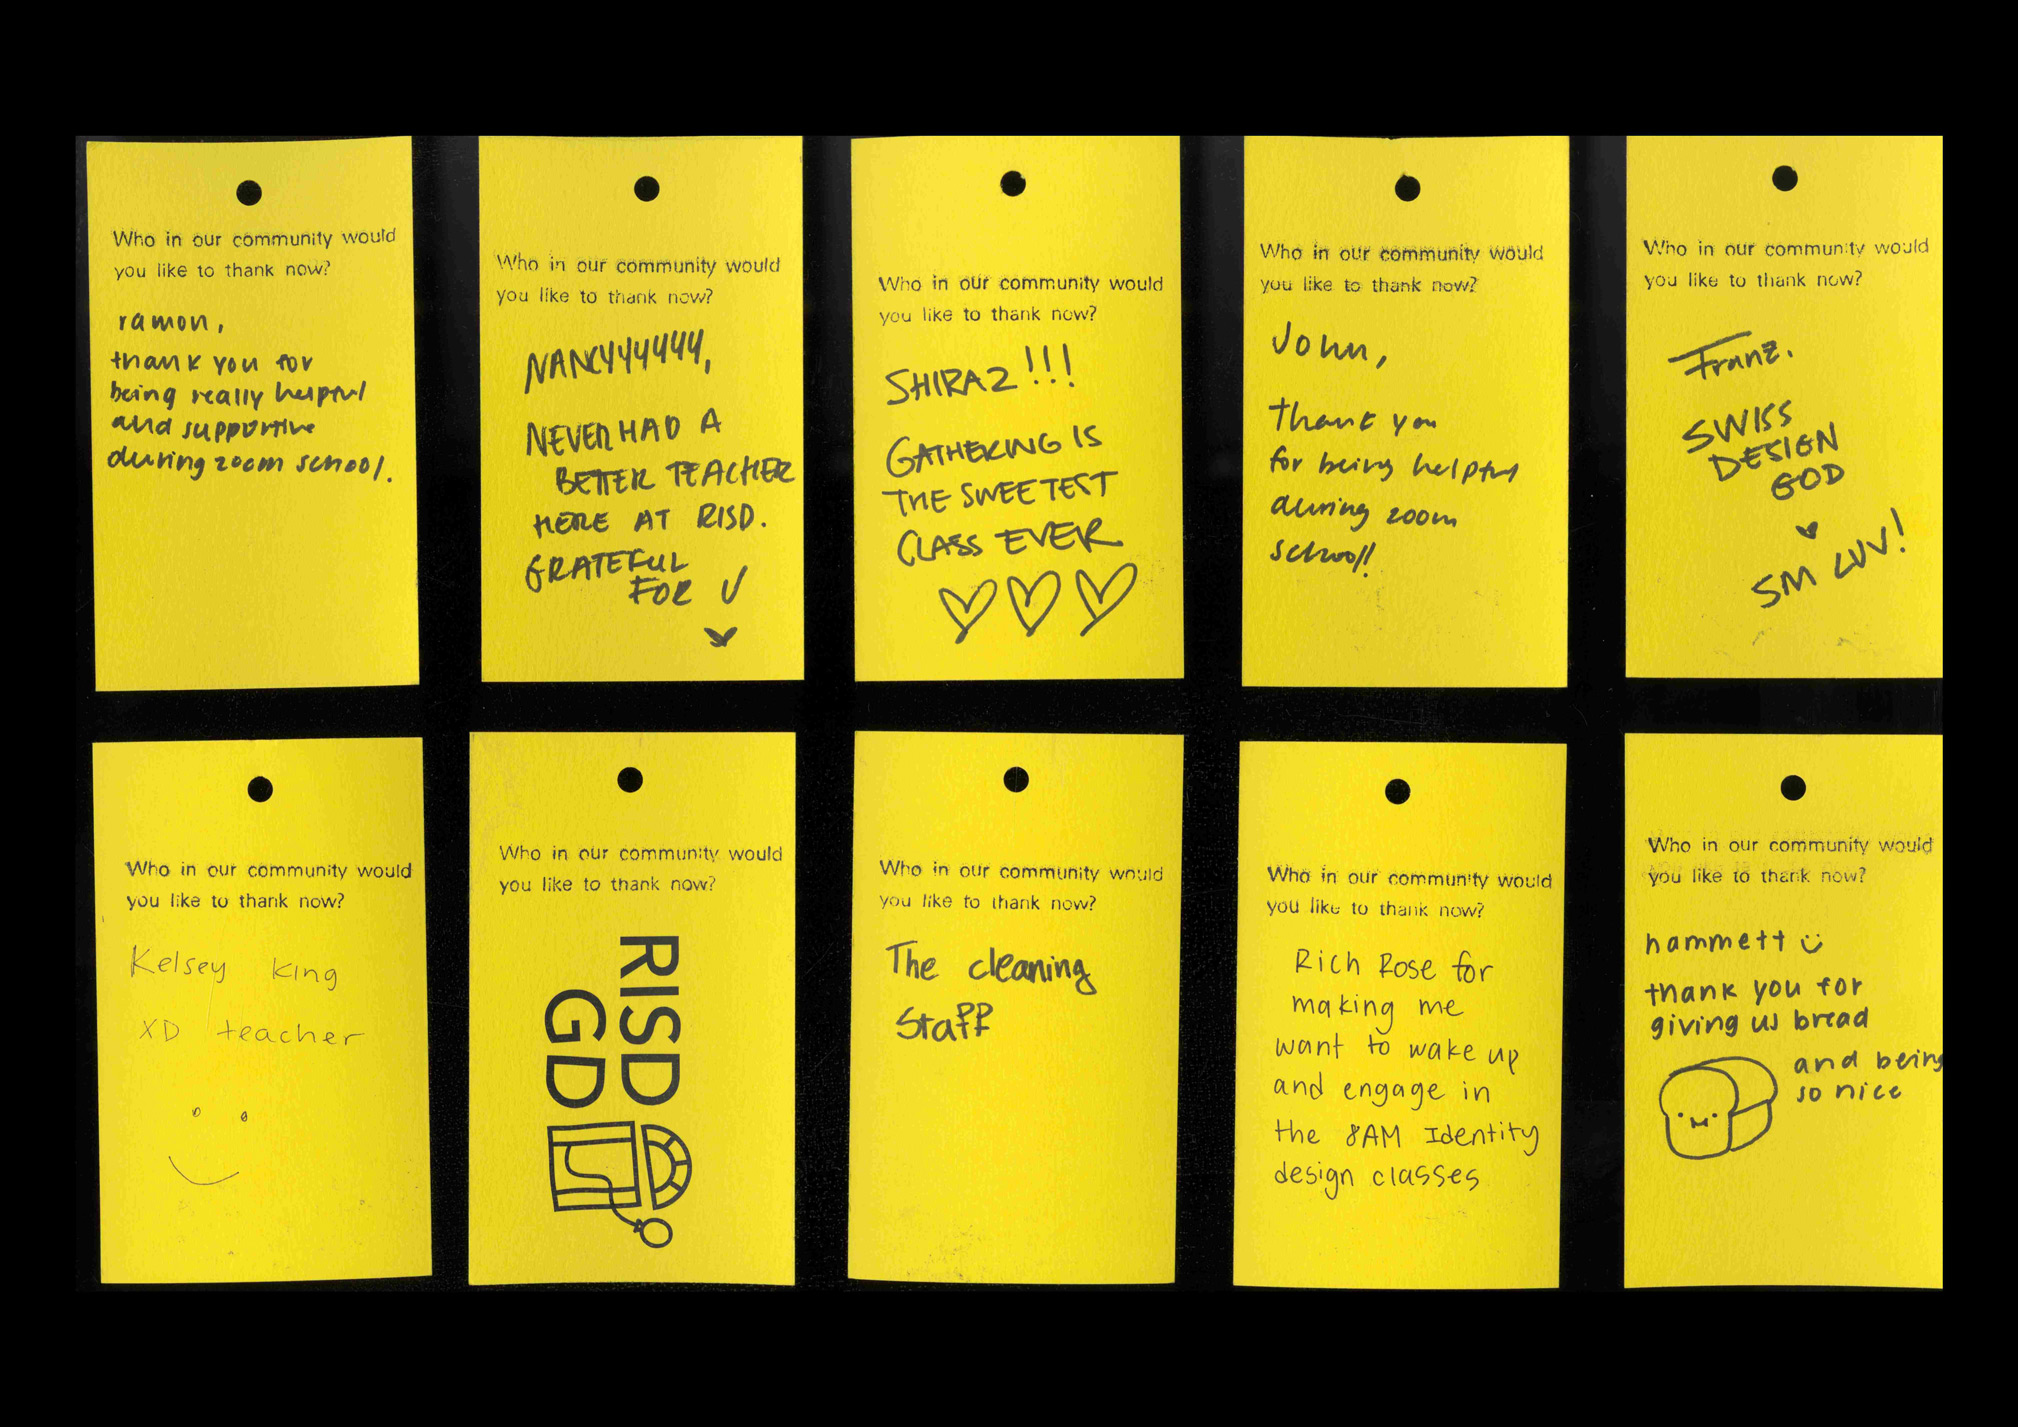 Who in our community would
you like to thank now?
ramon,
thank you for
being really helpful
and supportive
during zoom school.
Who in our community would
you like to thank now?
NANCYYYYYY,
NEVER HAD A
BETTER TEACHER
HERE AT RISD.
GRATEFUL
FOR U
Who in our community would
you like to thank now?
SHIRAZ!!!
GATHERING IS
THE SWEETEST
CLASS EVER
Who in our community would
you like to thank now?
John,
thank you
for being helpful
during zoom
school!
Who in our community would
you like to thank now?
Franz.
SWISS
DESIGN
GOD
SM LUV!
Who in our community would
you like to thank now?
Kelsey King
XD teacher
Who in our community would
you like to thank now?
RISD
GD
Who in our community would
you like to thank now?
The cleaning
Staff
Who in our community would
you like to thank now?
Rich Rose for
making me
want to wake up
and engage in
the 8AM Identity
design classes
Who in our community would
you like to thank now?
hammett
thank you for
giving us bread
and being
so nice